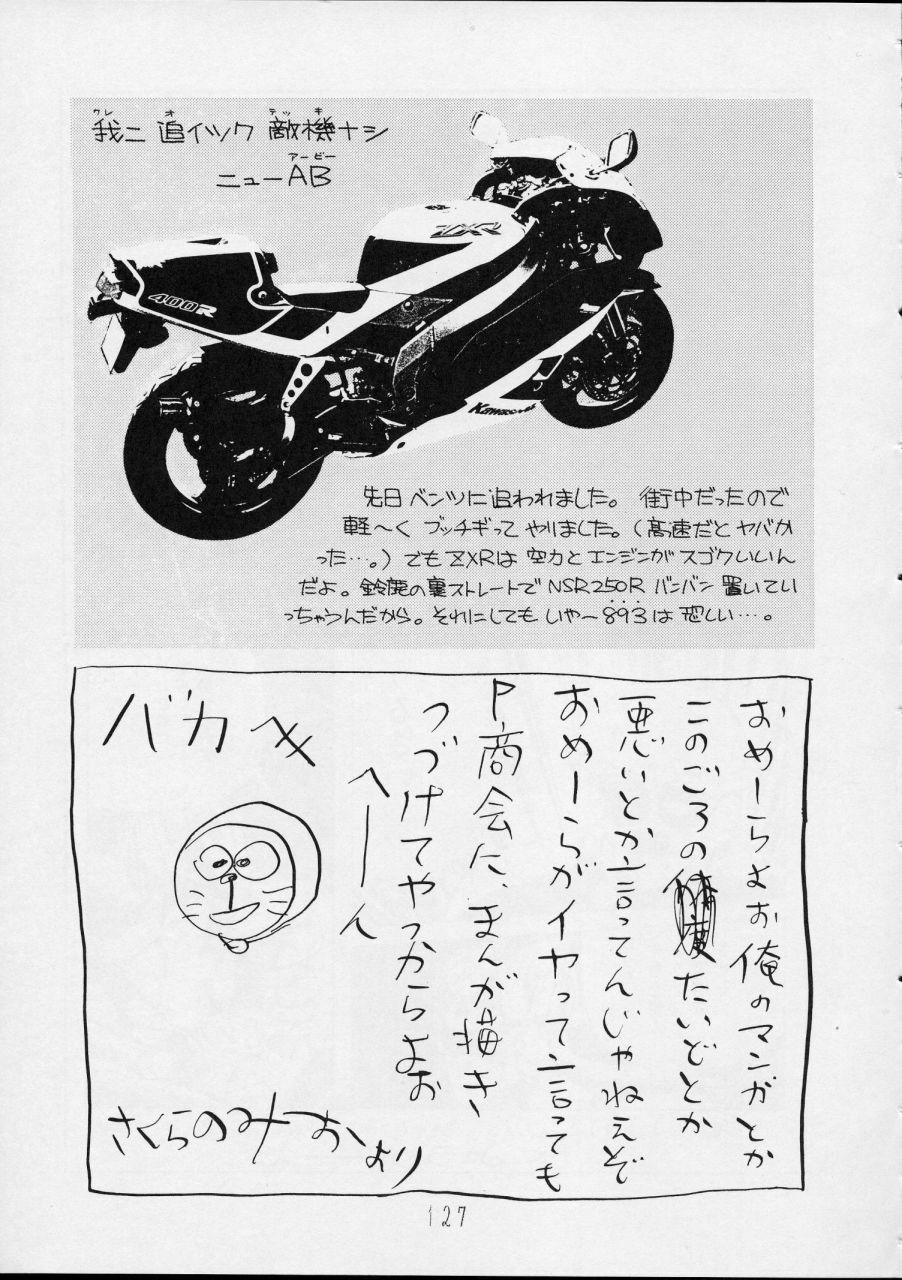 我ニ 追イツク 敵機ナシ
ニューAB
ワレ オ テッキ
アービー
ZXR
400R
Kawasaki
先日 ベンツに追われました。 街中だったので
軽〜く ブッチギって やりました。(高速だと ヤバか
った…。)でも ZXRは 空力と エンジンが スゴクいいん
だよ。鈴鹿の裏ストレートで NSR250R バンバン 置いてい
っちゃうんだから。それにしても いやー 893は 恐しい…。
おめーらよお俺のマンガとか
このごろのたいどとか
悪いとか言ってんじゃねえぞ
おめーらがイヤって言っても
P.商会に、まんが描き
つづけてやっからよお
へーん
バカめ
さくらのみつおより
127